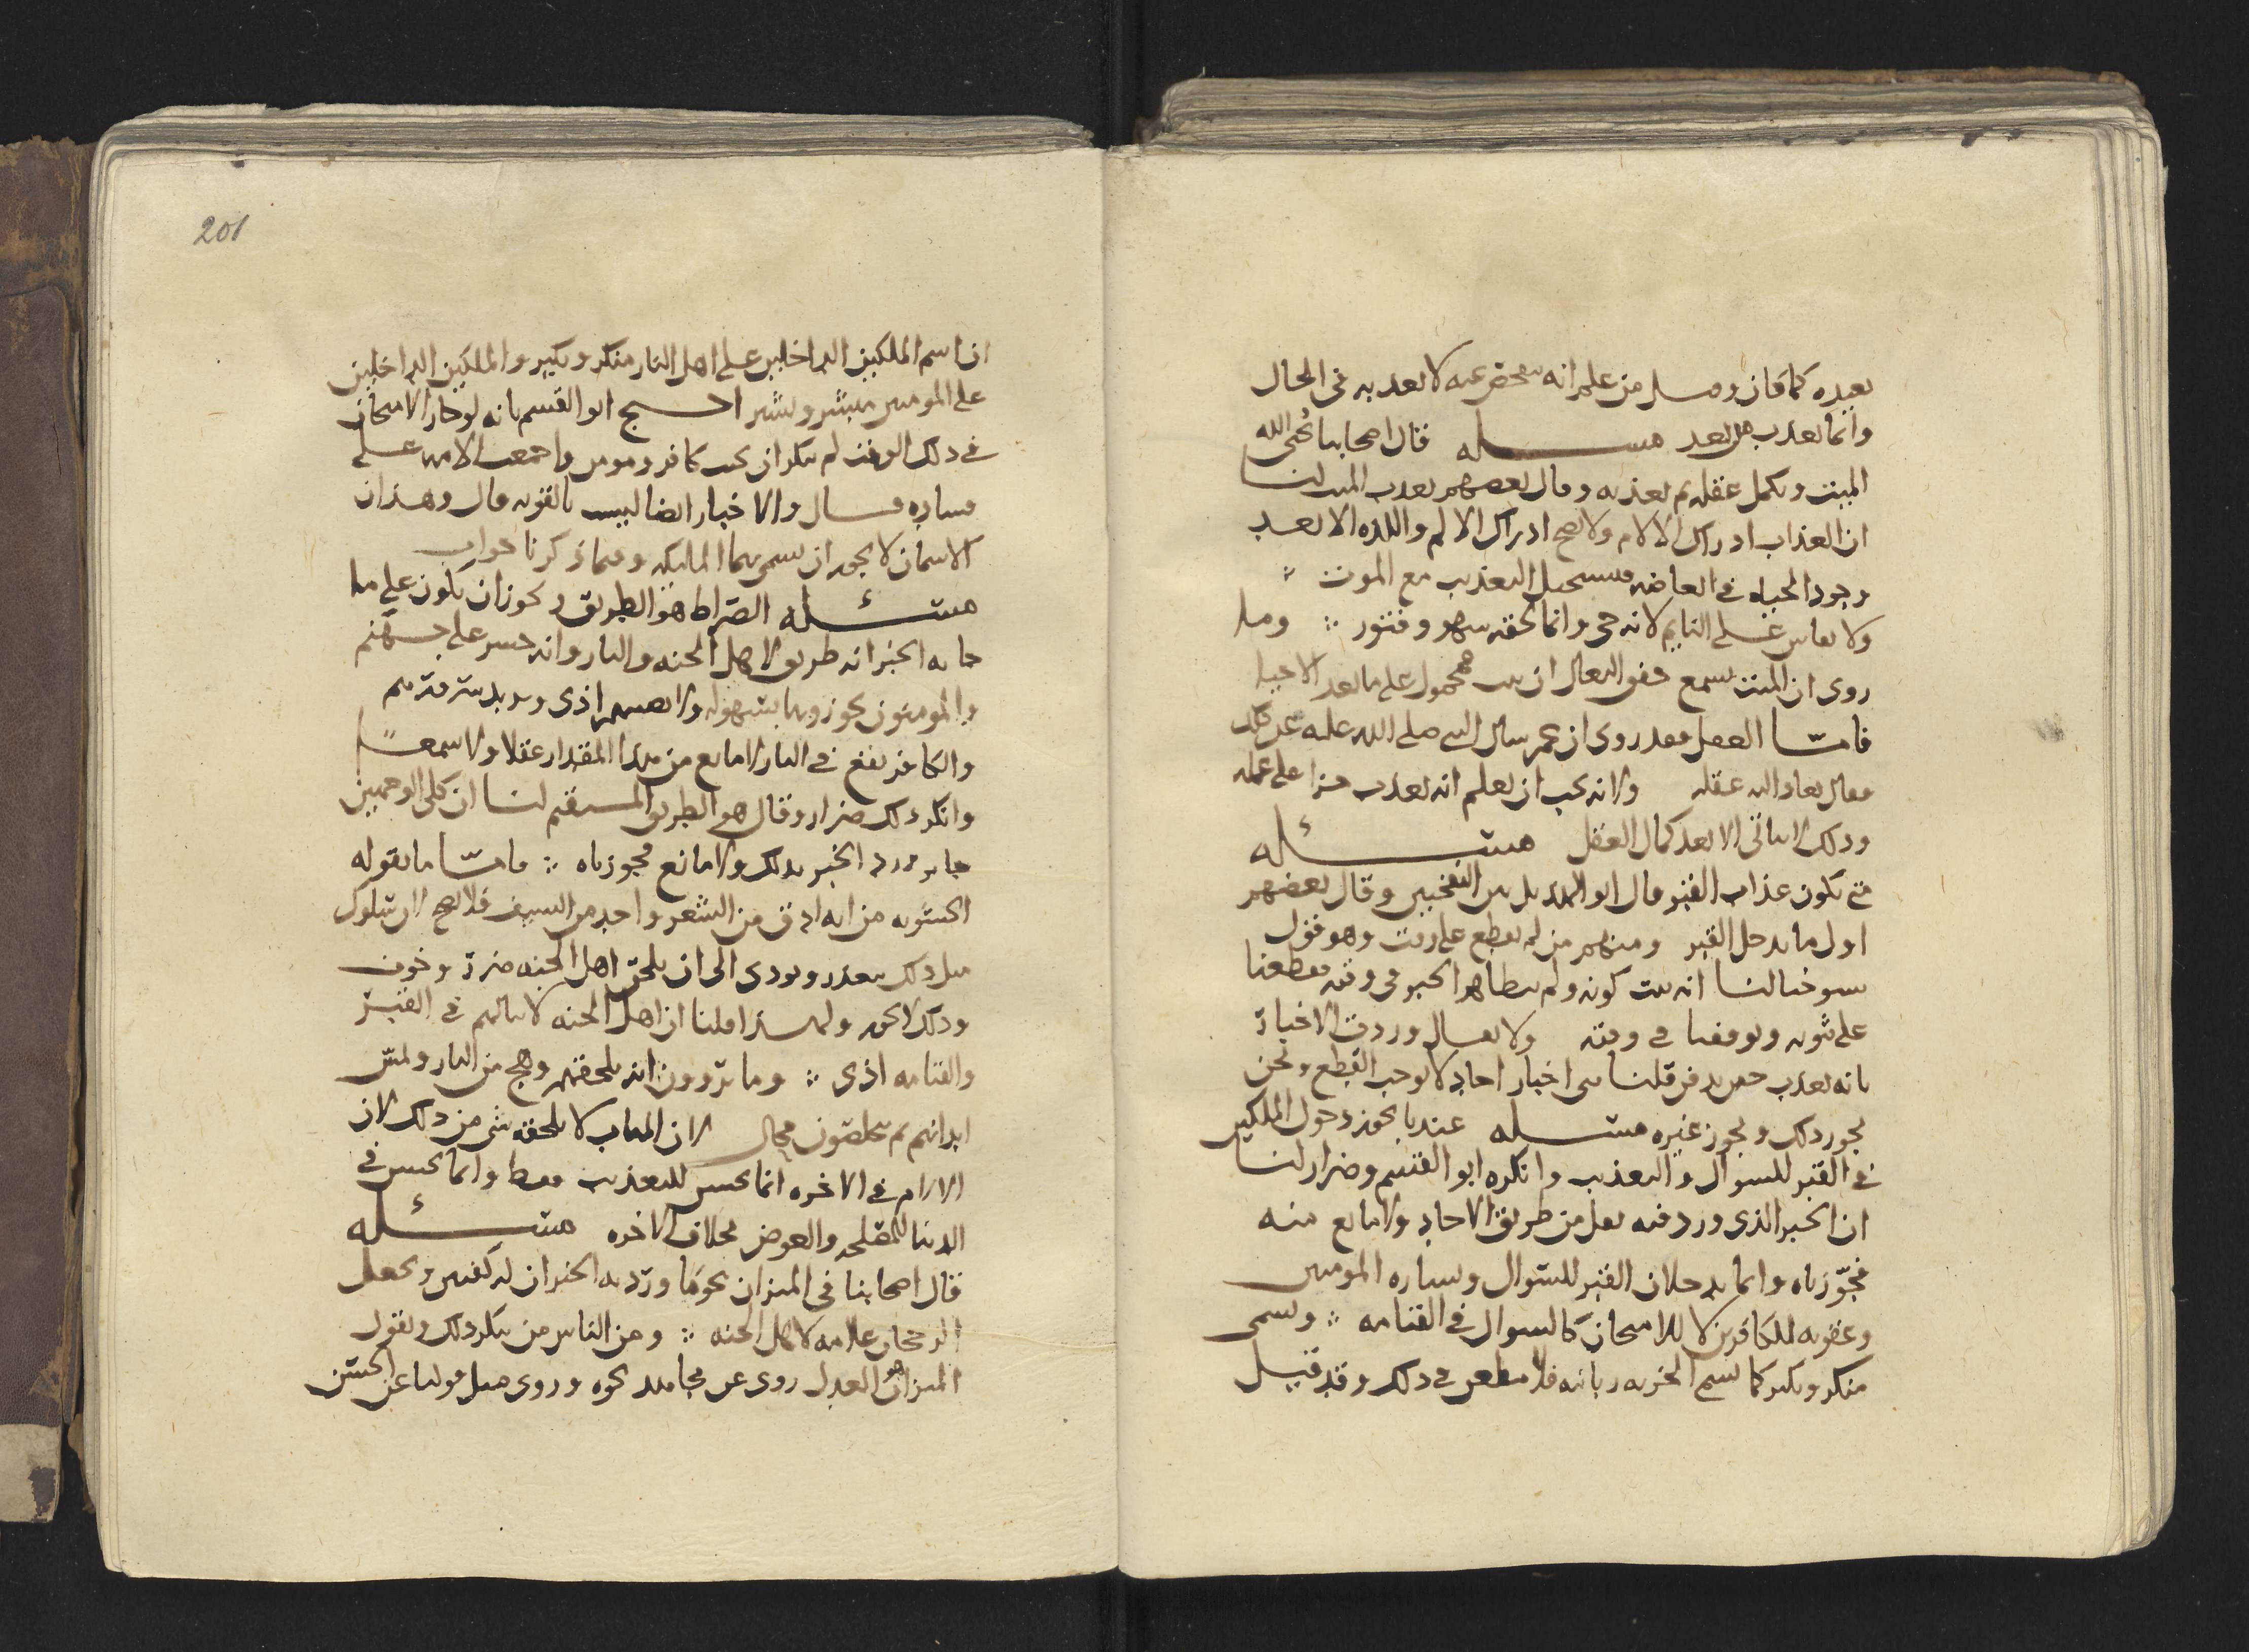 يعيده كما كان وقيل من علم انه يمحص عنه لا يعذبه في الحال
وانما يعذب من بعد مسله قال اصحابنا يُحيي الله
الميت ويكمل عقله ثم يعذبه وقال بعضهم يعذب الميت لنا
ان العذاب ادراك الالام ولا يصح ادراك الالم واللذه الا بعد
وجود الحياه في العاضه فيستحيل التعذيب مع الموت
ولا يقاس على النايم لانه حي وانما لحقه سهو وفتور وما
روي ان الميت يسمع خفق النعال ان ثبت فمحمول على ما بعد الاحيا
فامّا العقل فقد روي ان عمر سال النبي صلى الله عليه عن ذلك
فقال يعاد اليه عقله ولانه يجب ان يعلم انه يعذب جزا على عمله
وذلك لا يتاتى الا بعد كمال العقل مسئله
متى يكون عذاب القبر قال ابو الهذيل بين النفختين وقال بعضهم
اول ما يدخل القبر ومنهم من لم يقطع على وقت وهو قول
شيوخنا لنا انه ثبت كونه ولم يتظاهر الخبر في وقته فقطعنا
على ثبوته وتوقفنا في وقته ولا يقال وردت الاخبار
بانه يعذب حين يدفن قلنا هي اخبار احاد لا توجب القطع ونحن
نجوز ذلك ونجوز غيره مسله عندنا يجوز دخول الملكين
في القبر للسوال والتعذيب وانكره ابو القسم وضرار لنا
ان الخبر الذي ورد فيه نقل من طريق الاحاد ولا مانع منه
فجوّزناه وانما يدخلان القبر للسوال وبشاره المومنين
وعقوبه للكافرين لا للامتحان كالسوال في القيامه ويسمى
منكر ونكير كما تسمى الخزنه زبانيه فلا مطعن في ذلك وقد قيل
201
ان اسم الملكين الداخلين على اهل النار منكر ونكير والملكين الداخلين
على المومنين مبشر وبشير احتج ابو القسم بانه لو جاز الامتحان
في ذلك الوقت لم ينكر ان يجيب كافر ومومن واجمعت الامه على
فساده قال والاخبار ايضا ليست بالقويه قال وهذان
الاسمان لا يجوز ان يسمى بهما الملايكه وفيما ذكرنا جواب
مسئله الصّراط هو الطريق ويجوز ان يكون على ما
جا به الخبر انه طريق لاهل الجنه والنار وانه جسر على جهنم
والمومنون يجوزونها بسهوله ولا يصيبهم اذى ويزيد سرورهم
والكافر يقع في النار لا مانع من هذا المقدار عقلا ولا سمعًا
وانكر ذلك ضرار وقال هو الطريق المستقيم لنا ان كلى الوجهين
جايز وورد الخبر بذلك ولا مانع فجوزناه فامّا ما يقوله
الحشويه من انه ادق من الشعر واحد من السيف فلا يصح لان سلوك
مثل ذلك يتعذر ويودي الى ان يلحق اهل الجنه ضرر وخوف
وذلك لا يجوز ولهذا قلنا ان اهل الجنه لا ينالهم في القبر
والقيامه اذى وما يروون انه يلحقهم وهج من النار ولمس
ابدانهم ثم يخلصون محال لان المثاب لا يلحقه شي من ذلك لان
الالام في الاخره انما يحسن للتعذيب فقط وانما يحسن في
الدنيا للمصلحه والعوض بخلاف الاخره مسئله
قال اصحابنا في الميزان نحو ما ورد به الخبر ان له كفتين ويجعل
الرجحان علامه لاهل الجنه ومن الناس من ينكر ذلك ويقول
الميزان هو العدل روي عن مجاهد نحوه وروي مثل قولنا عن الحسن